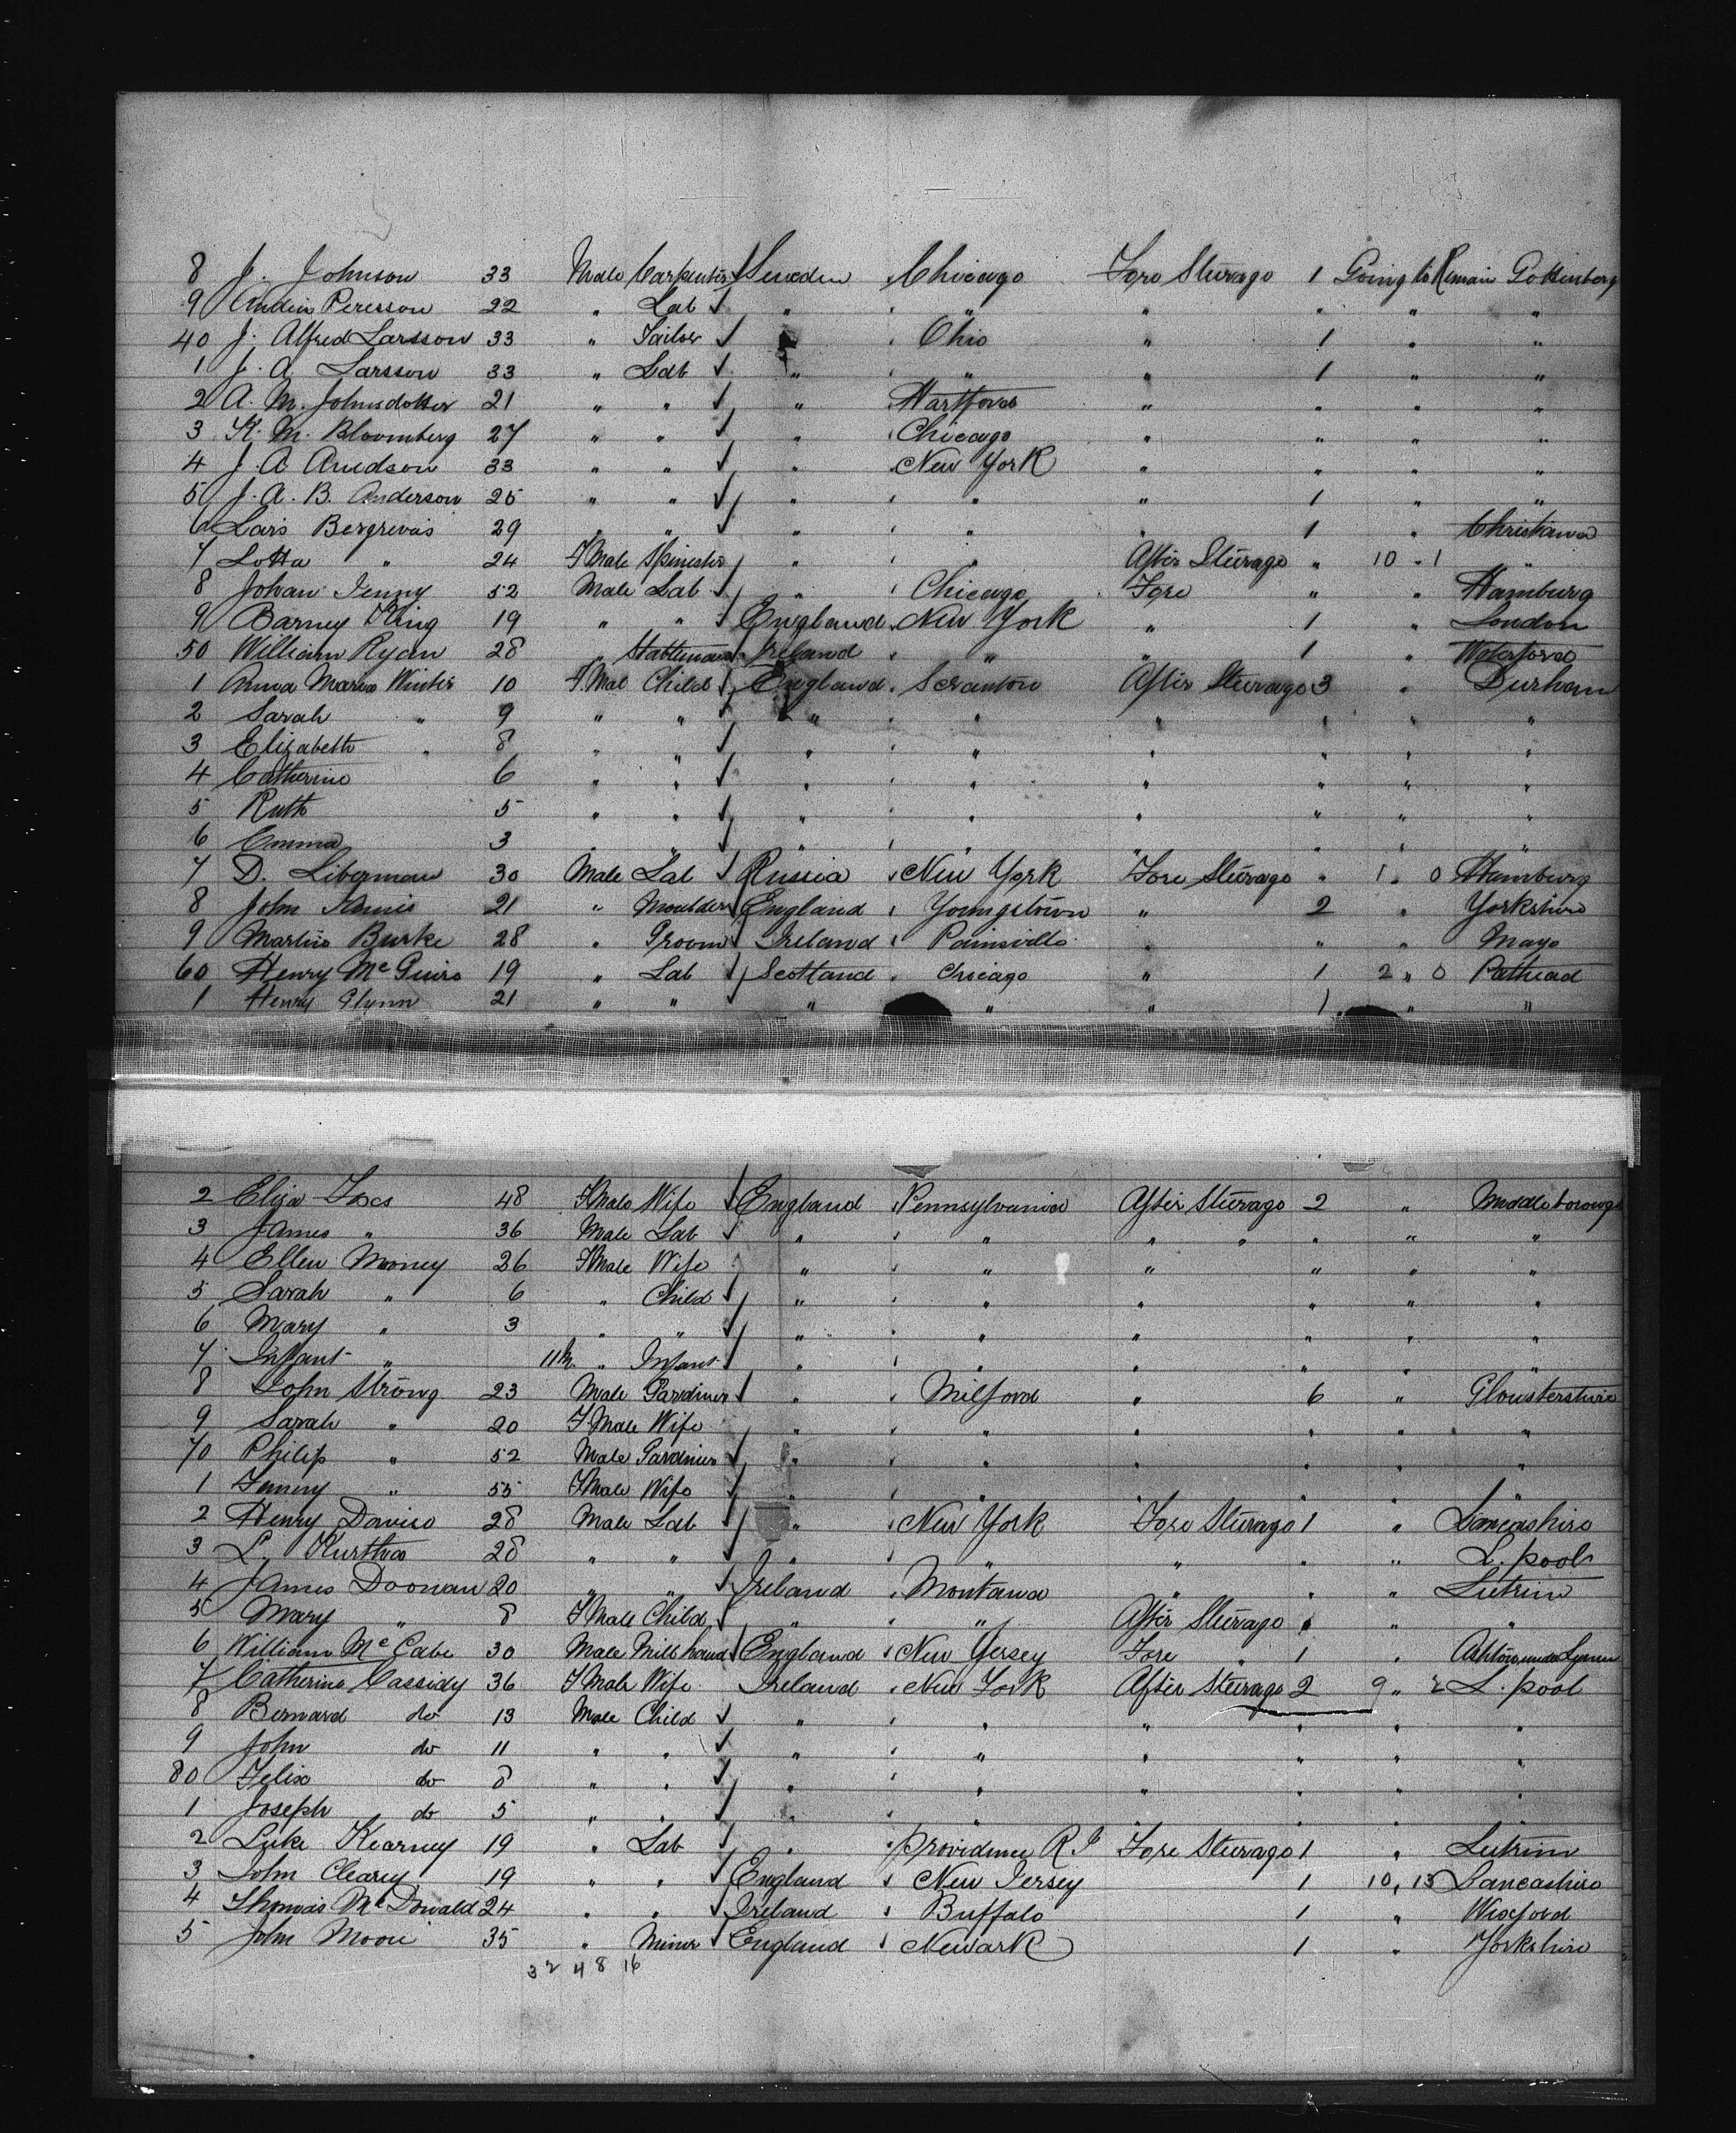 8 J. Johnson 33 Male Carpenter Sweden Chicago Fore Steerage 1 Going to Remain Gottenberg
9 Peresson 22 " Lab " " " " " "
40 J. Alfred Larsson 33 " Sailor Ohio " 1 " "
1 J. A. Larsson 33 " Lab " " " 1 " "
2 A. M. Johnsdotter 21 " " " Hartford " " " "
3 K. M. Bloomberg 27 " " " Chicago " " " "
4 J. A. 33 " " " New York " " " "
5 J. A. B. Anderson 25 " " " " " 1 " "
6 Lars 29 " " " " " 1 " Christiana
7 Lotta " 24 FMale Spinster " " After Steerage " 10 " 1 "
8 Johan Jenny 52 Male Lab " Chicago Fore " " Hamburg
9 Barney King 19 " " England New York " 1 " London
50 William Ryan 28 " Ireland " " 1 " Waterford
1 Anna Maria Winter 10 FMal Child England Scranton After Steerage 3 " Durham
2 Sarah " 9 " " " " " " " "
3 Elizabeth " 8 " " " " " " " "
4 Catherine 6 " " " " " " " "
5 Ruth 5 " " " " " " " "
6 Emma 3 " " " " " " " "
7 D. Liberman 30 Male Lab Russia New York Fore Steerage " 1 " 0 Hamburg
8 John 21 " Moulder England Youngstown " 2 " Yorkshire
9 Martin Burke 28 " Groom Ireland Painsville " " " Mayo
60 Henry McGuire 19 " Lab Scotland Chicago " 1 2 " 0 Pathead
1 Henry Glynn 21 " " " " " 1 " "
2 Eliza 48 FMale Wife England Pennsylvania After Steerage 2 " Middleborough
3 James " 36 Male Lab " " " " " " "
4 Ellen Mooney 26 FMale Wife " " " " " "
5 Sarah " 6 " Child " " " " " "
6 Mary " 3 " " " " " " " "
7 Infant " 11 m " Infant " " " " " "
8 John Strong 23 Male Gardiner " Milford " 6 " Gloustershire
9 Sarah " 20 FMale Wife " " " " " "
70 Philip " 52 Male Gardiner " " " " " "
1 " 55 FMale Wife " " " " " "
2 Henry 28 Male Lab " New York Fore Steerage 1 " Lancashire
3 L. 28 " " " " " " " L.pool
4 James Doonan 20 " " Ireland Montana " " " Lutrim
5 Mary " 8 FMale Child " " After Steerage " " "
6 William McCabe 30 Male Mill hand England New Jersey Fore " 1 " Ashton under Lynne
7 Catherine Cassidy 36 FMale Wife Ireland New York After Steerage 2 9 " 2 L. pool
8 Bernard do 13 Male Child " " " " " "
9 John do 11 " " " " " " " "
80 Felix do 8 " " " " " " " "
1 Joseph do 5 " " " " " " " "
2 Luke Kearney 19 " Lab " Providence R I Fore Steerage 1 " Lutrim
3 John Clearey 19 " " England New Jersey 1 10, 13 Lancashire
4 Thomas McDonald 24 " " Ireland Buffalo 1 " Wexford
5 John 35 " Miner England Newark 1 " Yorkshire
32 48 16